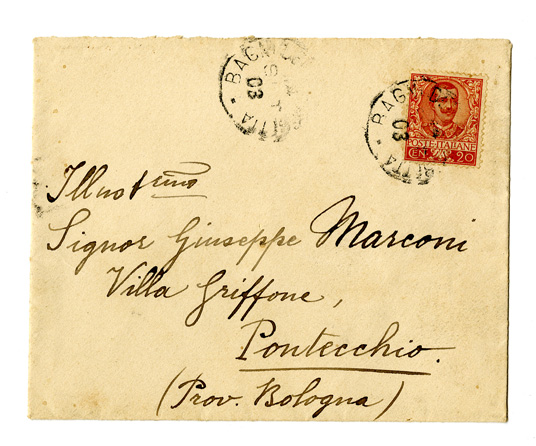 BAGN
03
BAGN
03
POSTE ITALIANE
CEN. 20
Illustrmo
Signor Giuseppe Marconi
Villa Griffone,
Pontecchio.
(Prov. Bologna)